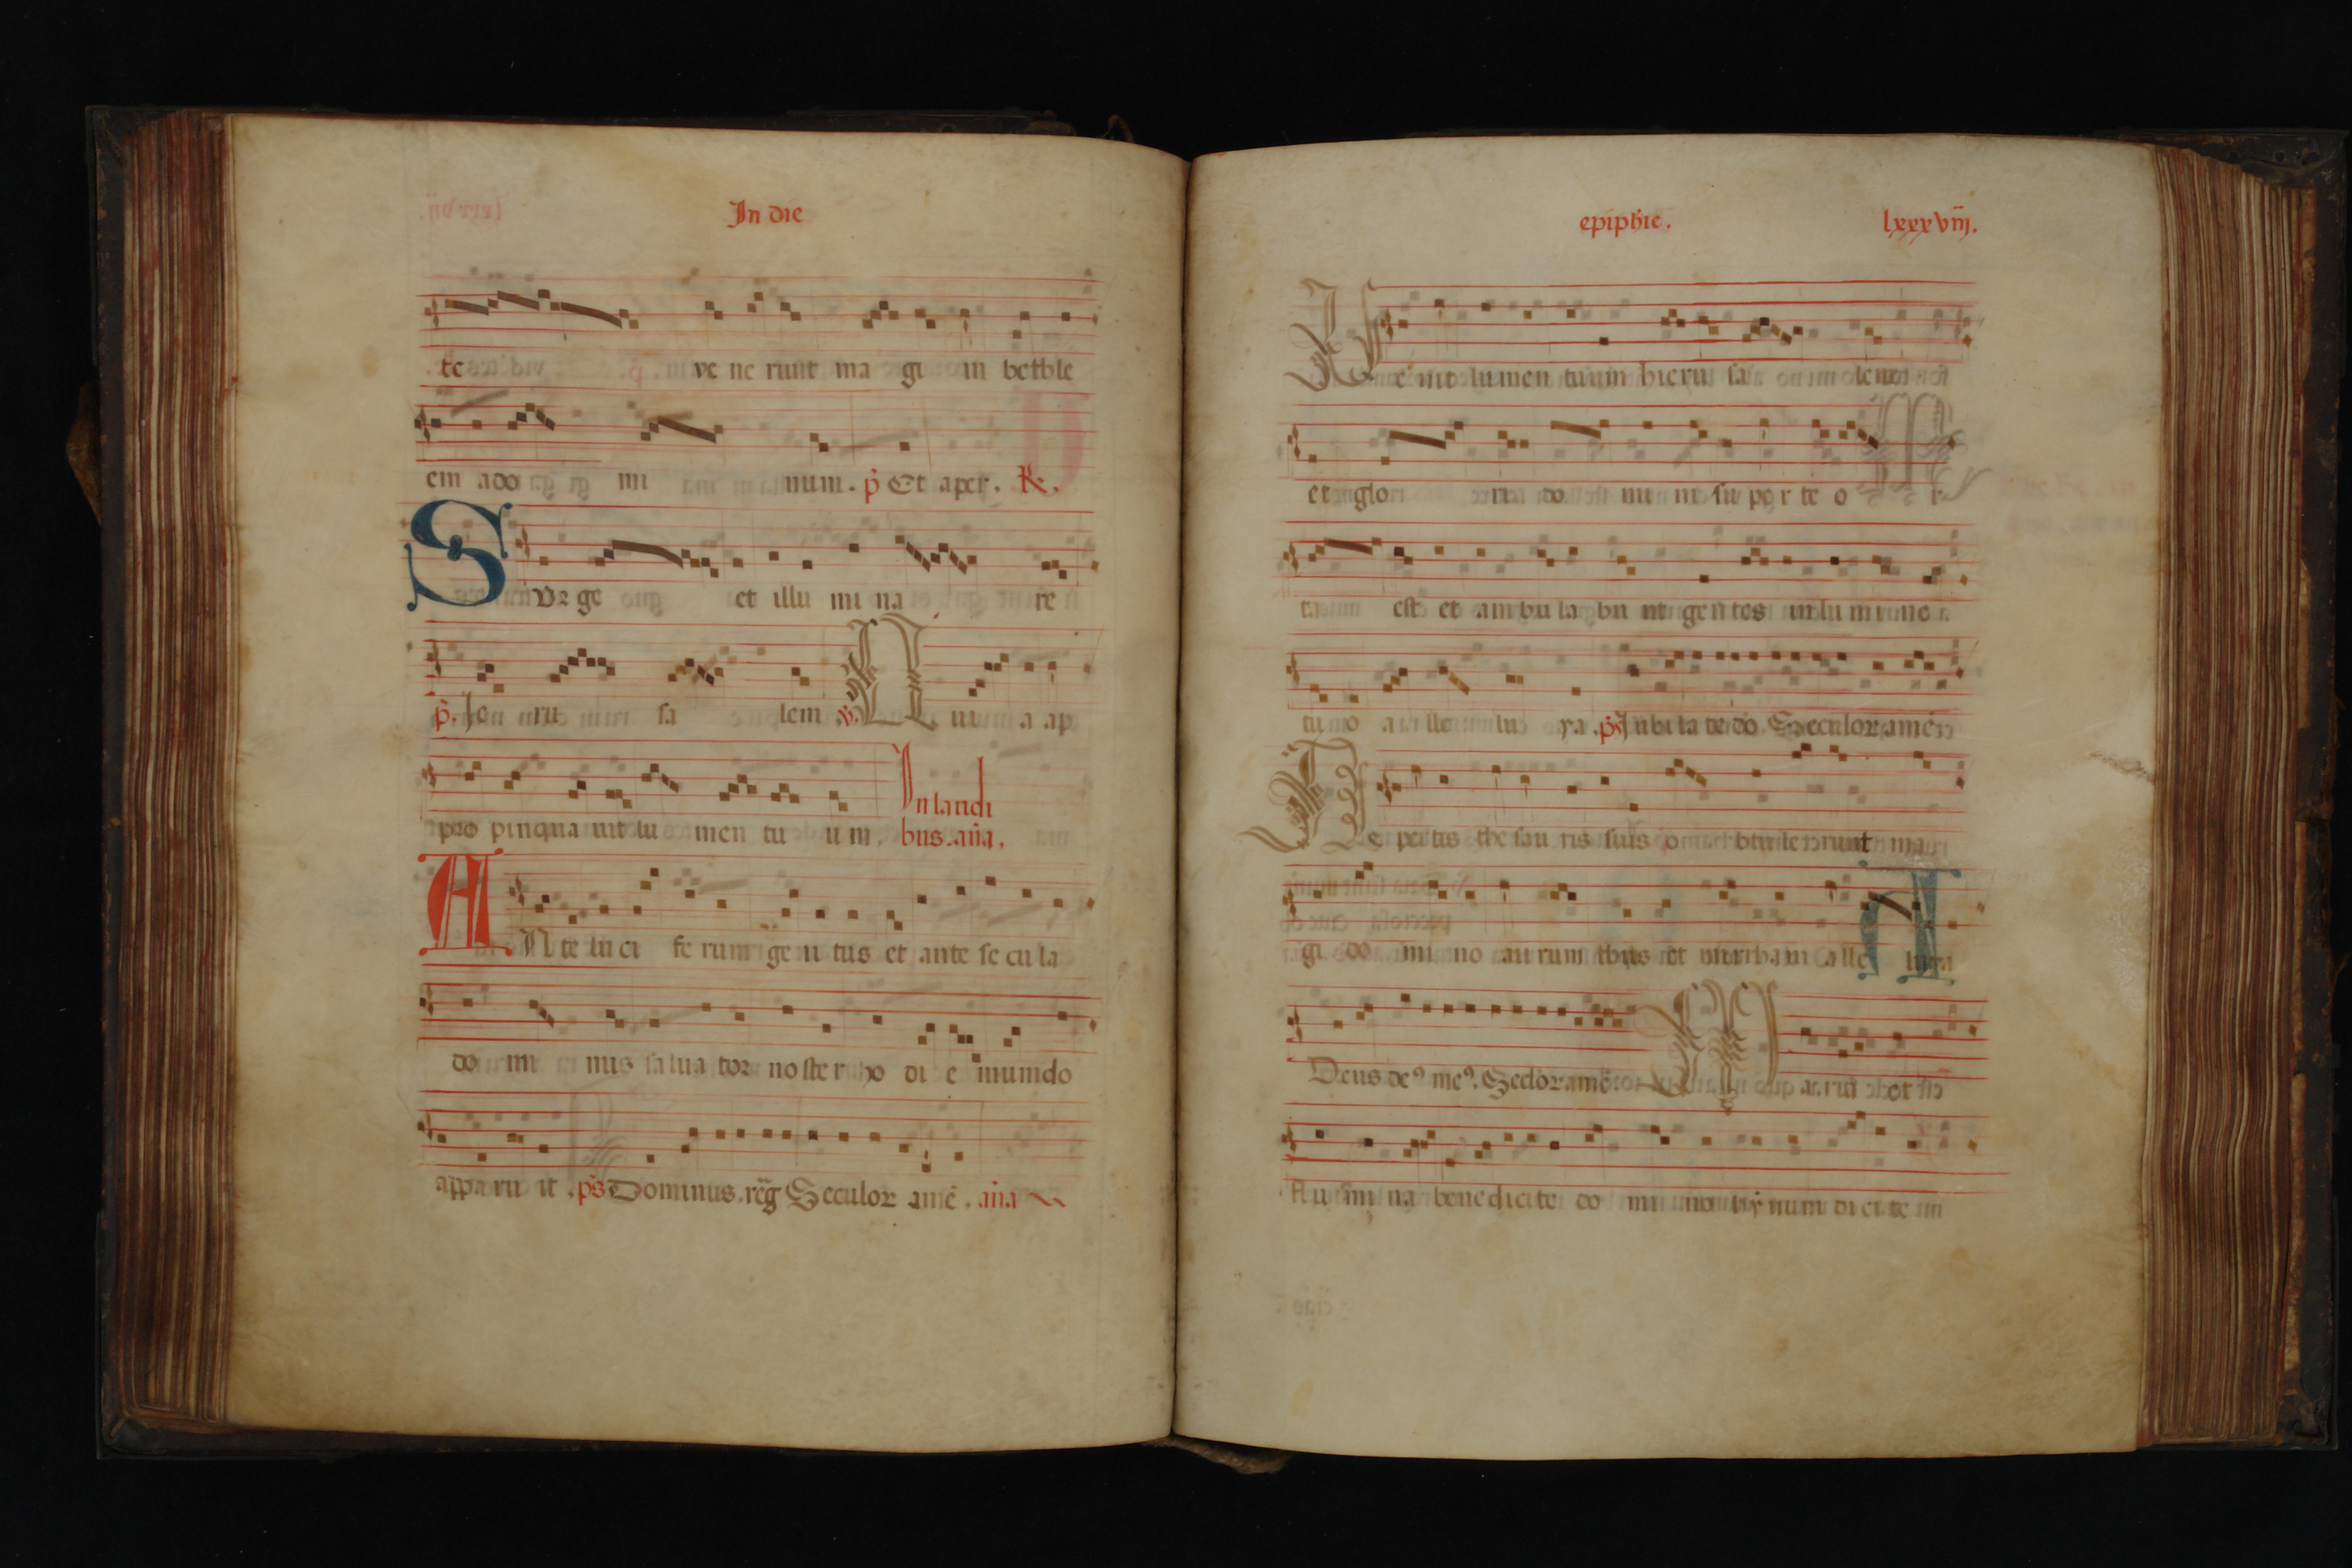 In die
te ve ne runt ma gi in bethle
em ado mi num. p̃ Et aper. R.
S vr ge et illu mi na re
p̃. Je ru sa lem ℣. Q ui a ap
pro pinqua uit lu men tu um. In laudi
bus. aña.
A N te luci fe rum ge ni tus et ante se cu la
do mi nus salua tor noster xp̄o di e mundo
appa ru it. ps̄ Dominus. reg̃ Seculor amē. aña
epiphīe. lxxxviij.
V e nit lumen tuum hieru sa lem
et glo ri do mi ni su per te o r
ta est et ambu la bu nt gentes in lu mi ne
tu o a lle lu ya. ps̄ Jubi la te do Seculor. amen
A pertis the sau ris suis o btulerunt ma
gi do mi no aurum thus et mirrham alle luya
Deus de⁹ me⁹. Seclor. amē. M a ri a et
flu mi na benedicite do mi no hẏ num dicite